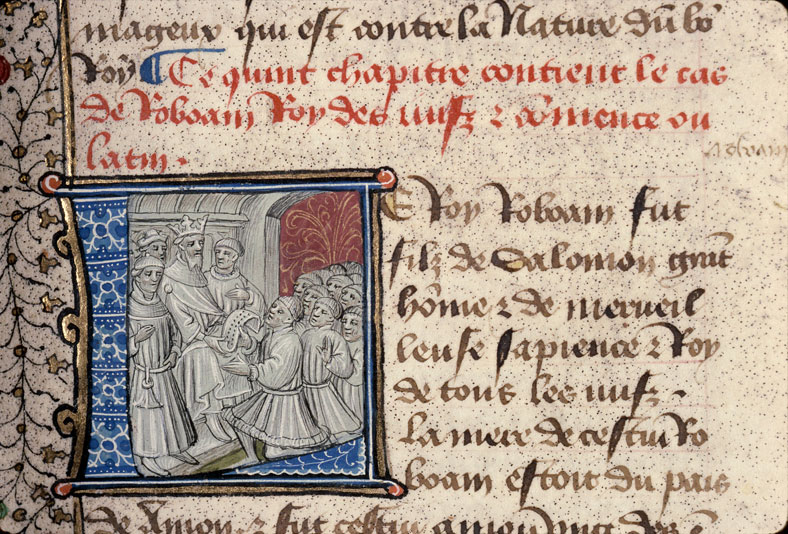 mageux qui est contre la Nature du bõ
Roy ¶ Ce quint chapitre contient le cas
de Roboam Roy des iuifz & cõmence ou
latin .
E Roy Roboam fut
filz de Salomon grãt
hõme & de merueil
leuse sapience & Roy
de tous les iuifz .
la mere de cestui Ro
boam estoit du pais
de Amon & fut cestui amon ung des
roboam